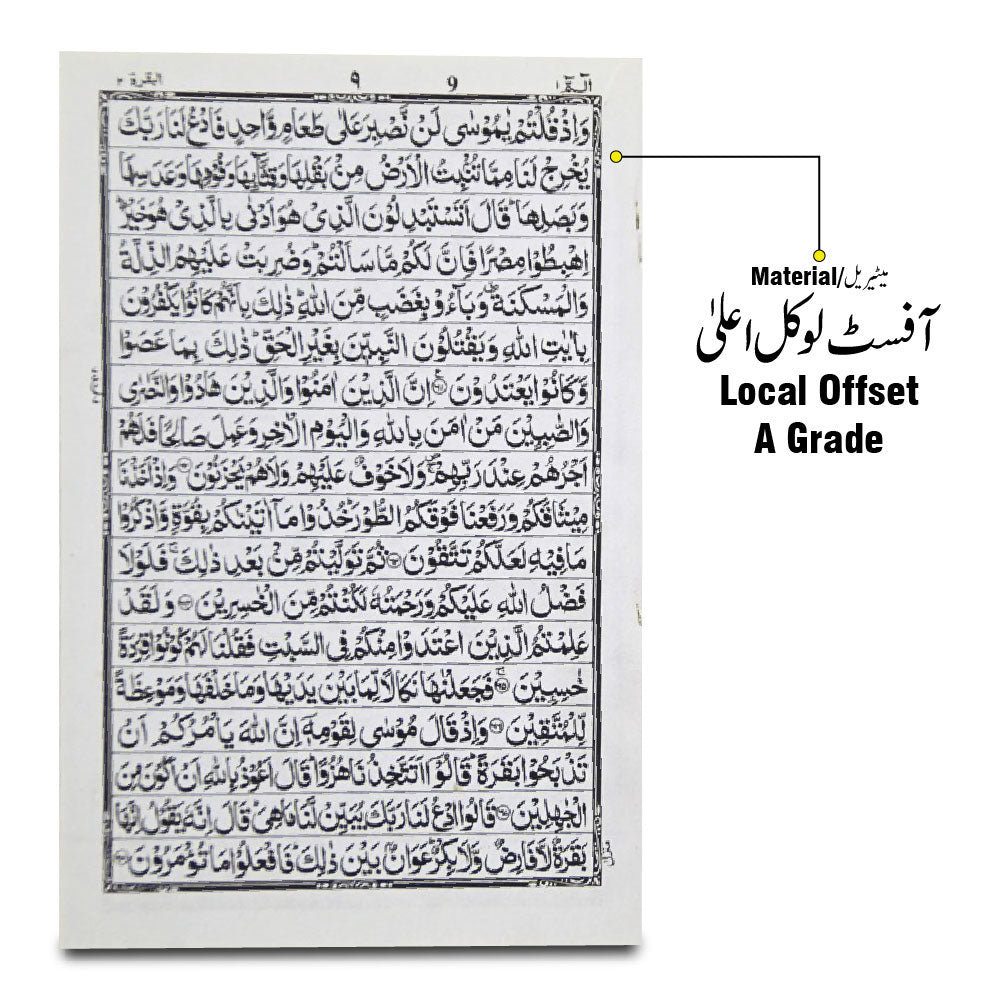 الٓمّٓ ١ 9 ٩ البقرة ٢
وَاِذْ قُلْتُمْ يٰمُوْسٰى لَنْ نَّصْبِرَ عَلٰى طَعَامٍ وَّاحِدٍ فَادْعُ لَنَا رَبَّكَ
يُخْرِجْ لَنَا مِمَّا تُنْۢبِتُ الْاَرْضُ مِنْۢ بَقْلِهَا وَقِثَّآئِهَا وَفُوْمِهَا وَعَدَسِهَا
وَبَصَلِهَا ؕ قَالَ اَتَسْتَبْدِلُوْنَ الَّذِيْ هُوَ اَدْنٰى بِالَّذِيْ هُوَ خَيْرٌ ؕ
اِهْبِطُوْا مِصْرًا فَاِنَّ لَكُمْ مَّا سَاَلْتُمْ ؕ وَضُرِبَتْ عَلَيْهِمُ الذِّلَّةُ
وَالْمَسْكَنَةُ ۗ وَبَآءُوْ بِغَضَبٍ مِّنَ اللّٰهِ ؕ ذٰلِكَ بِاَنَّهُمْ كَانُوْا يَكْفُرُوْنَ
بِاٰيٰتِ اللّٰهِ وَيَقْتُلُوْنَ النَّبِيّٖنَ بِغَيْرِ الْحَقِّ ؕ ذٰلِكَ بِمَا عَصَوْا
وَّكَانُوْا يَعْتَدُوْنَ ۝٦١ اِنَّ الَّذِيْنَ اٰمَنُوْا وَالَّذِيْنَ هَادُوْا وَالنَّصٰرٰى
وَالصّٰبِـِٕيْنَ مَنْ اٰمَنَ بِاللّٰهِ وَالْيَوْمِ الْاٰخِرِ وَعَمِلَ صَالِحًا فَلَهُمْ
اَجْرُهُمْ عِنْدَ رَبِّهِمْ ۚ وَلَا خَوْفٌ عَلَيْهِمْ وَلَا هُمْ يَحْزَنُوْنَ ۝٦٢ وَاِذْ اَخَذْنَا
مِيْثَاقَكُمْ وَرَفَعْنَا فَوْقَكُمُ الطُّوْرَ ؕ خُذُوْا مَآ اٰتَيْنٰكُمْ بِقُوَّةٍ وَّاذْكُرُوْا
مَا فِيْهِ لَعَلَّكُمْ تَتَّقُوْنَ ۝٦٣ ثُمَّ تَوَلَّيْتُمْ مِّنْۢ بَعْدِ ذٰلِكَ ۚ فَلَوْلَا
فَضْلُ اللّٰهِ عَلَيْكُمْ وَرَحْمَتُهٗ لَكُنْتُمْ مِّنَ الْخٰسِرِيْنَ ۝٦٤ وَلَقَدْ
عَلِمْتُمُ الَّذِيْنَ اعْتَدَوْا مِنْكُمْ فِى السَّبْتِ فَقُلْنَا لَهُمْ كُوْنُوْا قِرَدَةً
خٰسِـِٕيْنَ ۝٦٥ فَجَعَلْنٰهَا نَكَالًا لِّمَا بَيْنَ يَدَيْهَا وَمَا خَلْفَهَا وَمَوْعِظَةً
لِّلْمُتَّقِيْنَ ۝٦٦ وَاِذْ قَالَ مُوْسٰى لِقَوْمِهٖٓ اِنَّ اللّٰهَ يَاْمُرُكُمْ اَنْ
تَذْبَحُوْا بَقَرَةً ؕ قَالُوْٓا اَتَتَّخِذُنَا هُزُوًا ؕ قَالَ اَعُوْذُ بِاللّٰهِ اَنْ اَكُوْنَ مِنَ
الْجٰهِلِيْنَ ۝٦٧ قَالُوا ادْعُ لَنَا رَبَّكَ يُبَيِّنْ لَّنَا مَا هِىَ ؕ قَالَ اِنَّهٗ يَقُوْلُ اِنَّهَا
بَقَرَةٌ لَّا فَارِضٌ وَّلَا بِكْرٌ ؕ عَوَانٌۢ بَيْنَ ذٰلِكَ ؕ فَافْعَلُوْا مَا تُؤْمَرُوْنَ ۝٦٨
منزل
Material/میٹیریل
آفسٹ لوکل اعلیٰ
Local Offset
A Grade